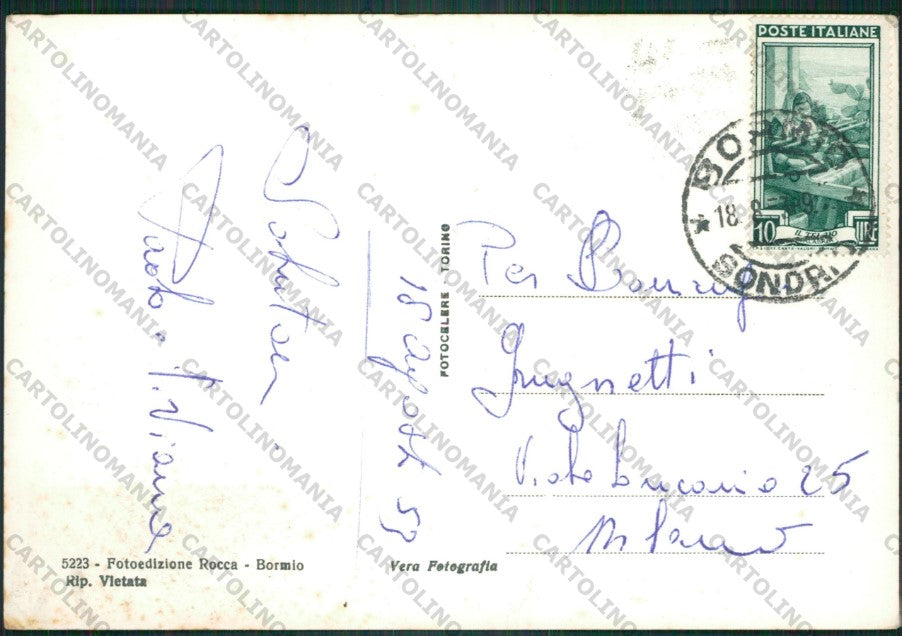 POSTE ITALIANE
10 LIRE
BORMIO
18 8
SONDRI
Saluti
18 Agosto 53
FOTOCELERE - TORINO
Per
Grugnetti
Viale Lucania 25
Milano
5223 - Fotoedizione Rocca - Bormio
Rip. Vietata
Vera Fotografia
CARTOLINOMANIA